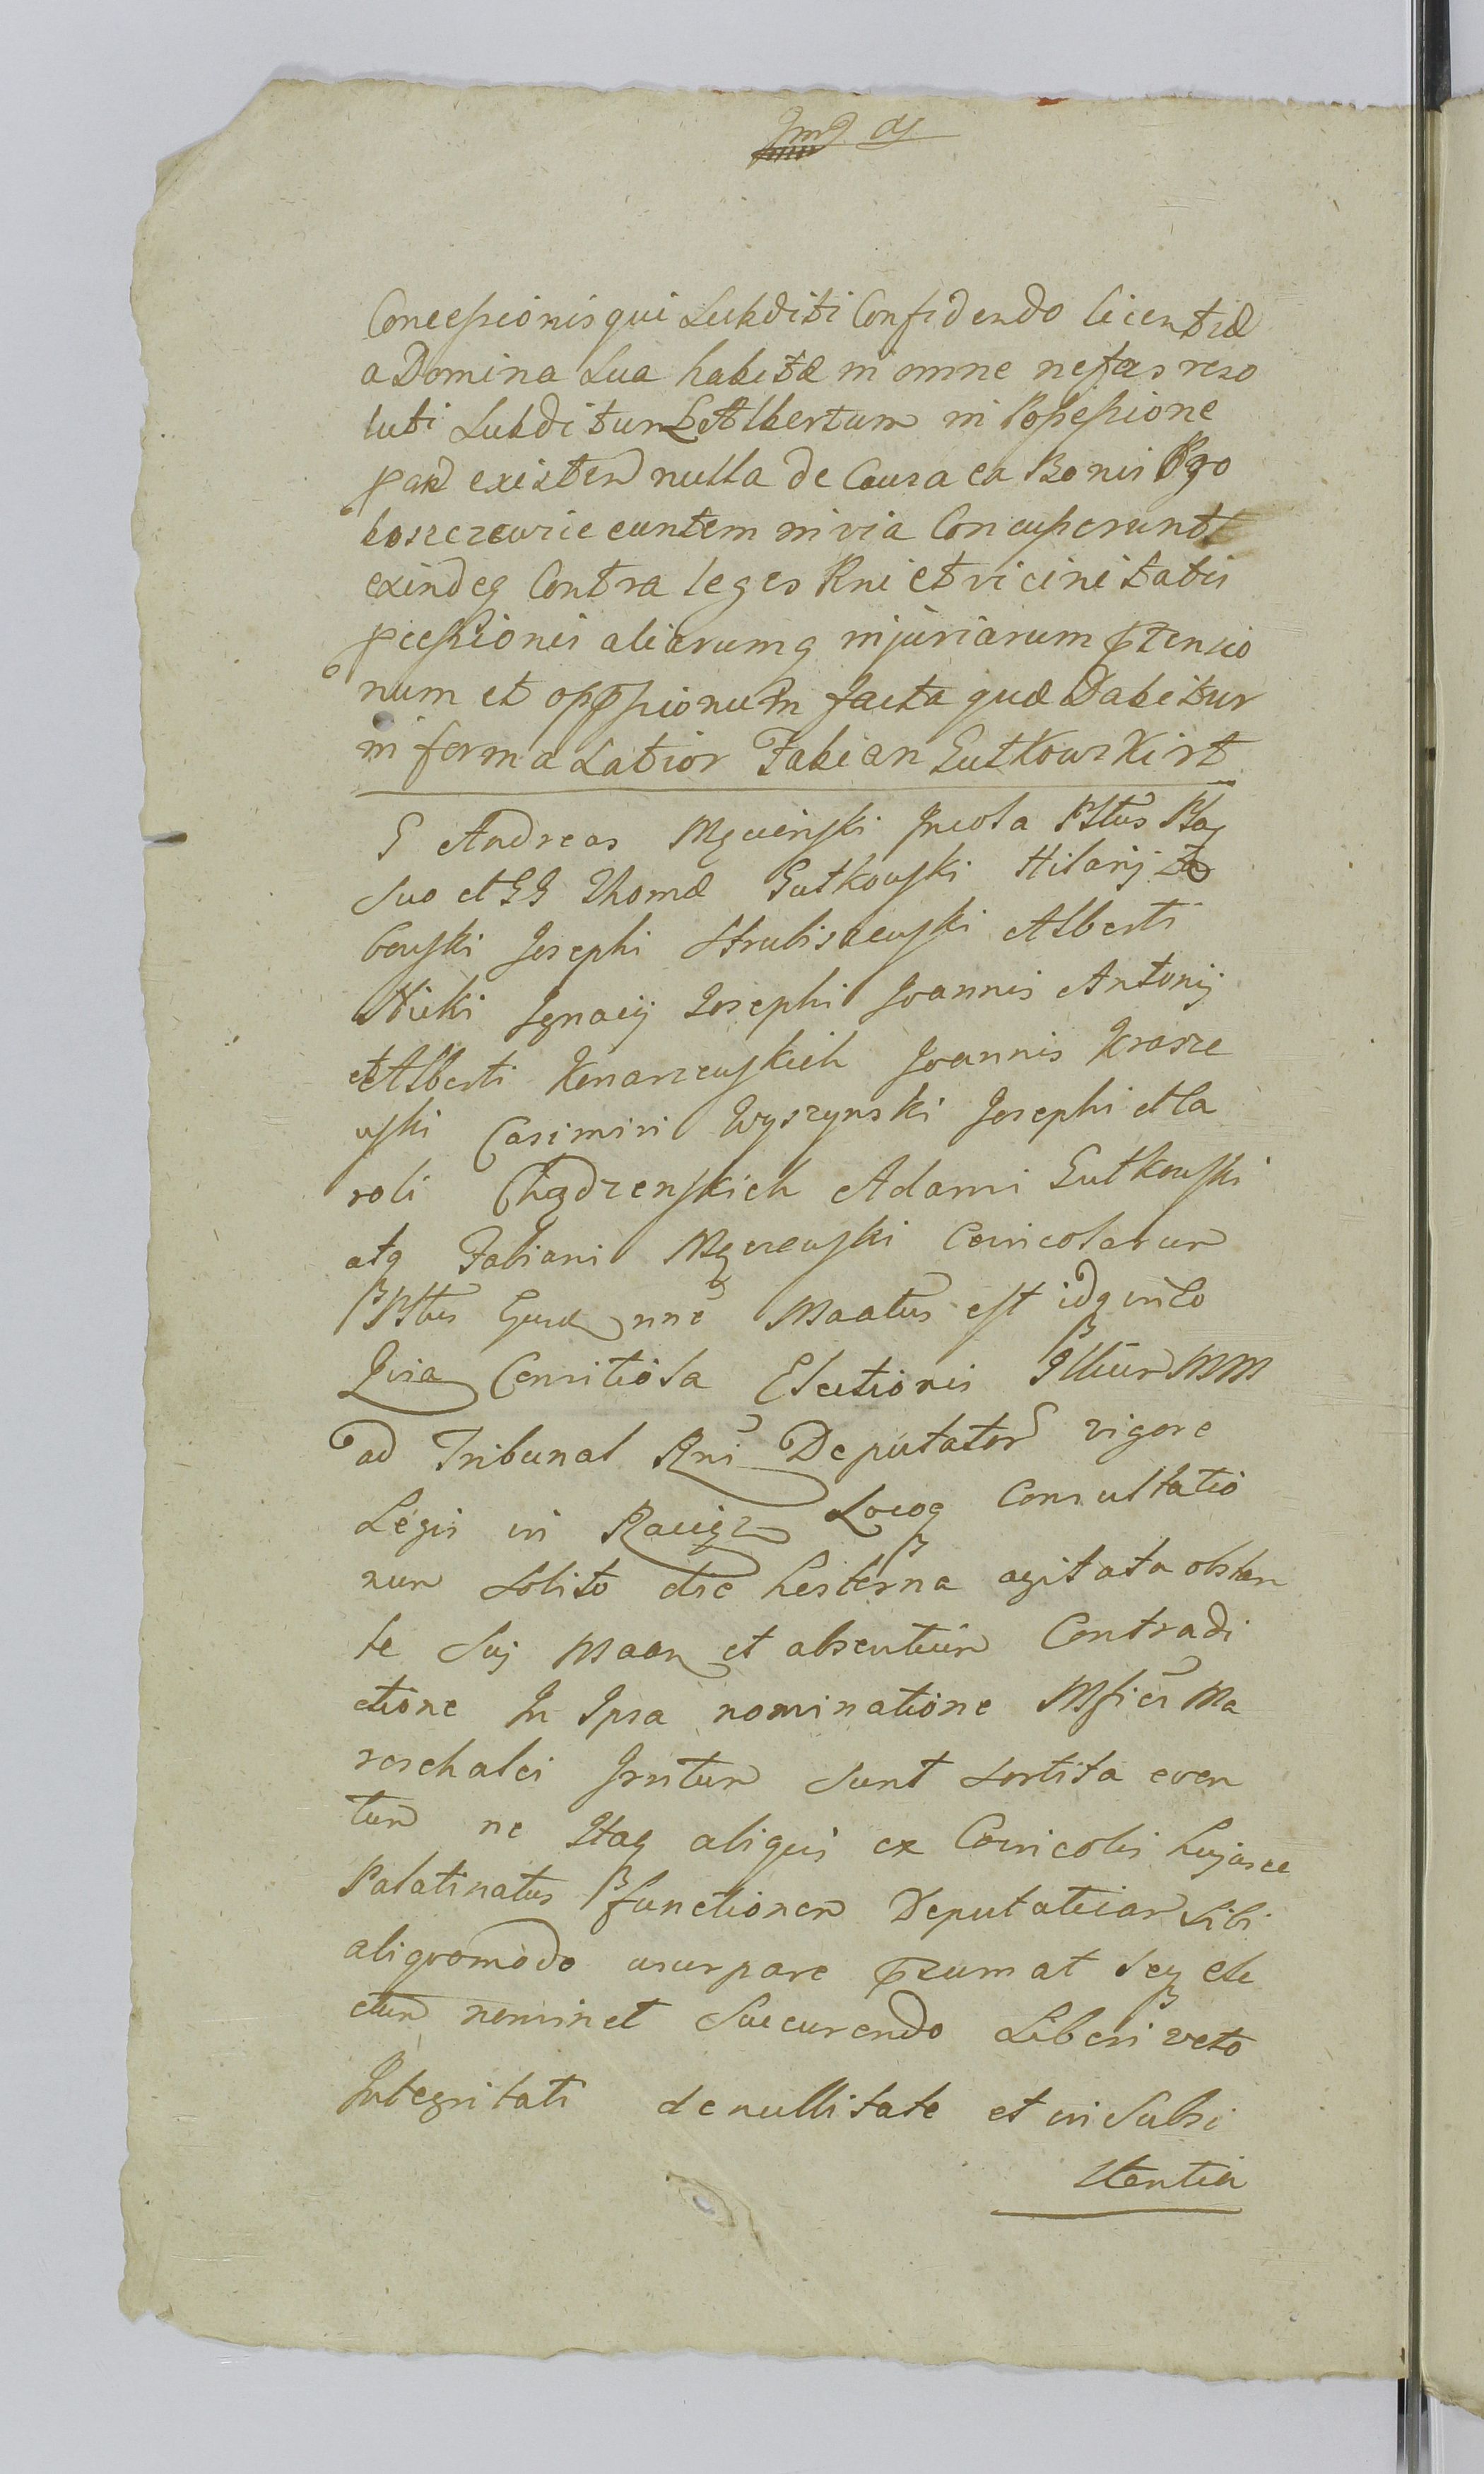 Concessionis qui Subditi Confidendo licentiæ
a Domina Sua habitæ in omne nefas reso
luti Subditum L Albertum in Possessione
existen nulla de Causa ea Bonis
euntem in via Concusserunt
exindeq Contra leges Rni et vicinitatis
pcessionis aliarumq injuriarum ptensio
num et oppssionum facta quæ Dabitur
in forma Latior Fabian Gutkowski rt
G Andreas Incola Pltus
Suo et GG Thomæ Gutkowski Hilarij
bowski Josephi Strubiszewski Alberti
Nicki Ignacij Josephi Joannis Antonij
et Alberti Konarzewskich Joannis Krasze
wski Casimiri Wyszynski Josephi et Ca
roli Chądzenskich Adami Gutkowski
atq Fabiani Coincolarum
nne Maatus est idq in Eo
Quia Comitiola Electionis Illum MM
ad Tribunal Rni Deputator vigore
Legis in Raciąz Locoq Consultatio
num Solito die hesterna agitata obstan
te Sui Maan et absentium Contradi
ctione In Ipsa nominatione Mfici Ma
reschalci Irritum Sunt Sortita even
tum ne Itaq aliquis ex Coincolis hujusce
Palatinatus functionem Deputatiiam Sibi
aliquomodo usurpare psumat Seq ele
ctum nominet Succurendo Liberi veto
Integritati de nullitate et in Subsi
stentia